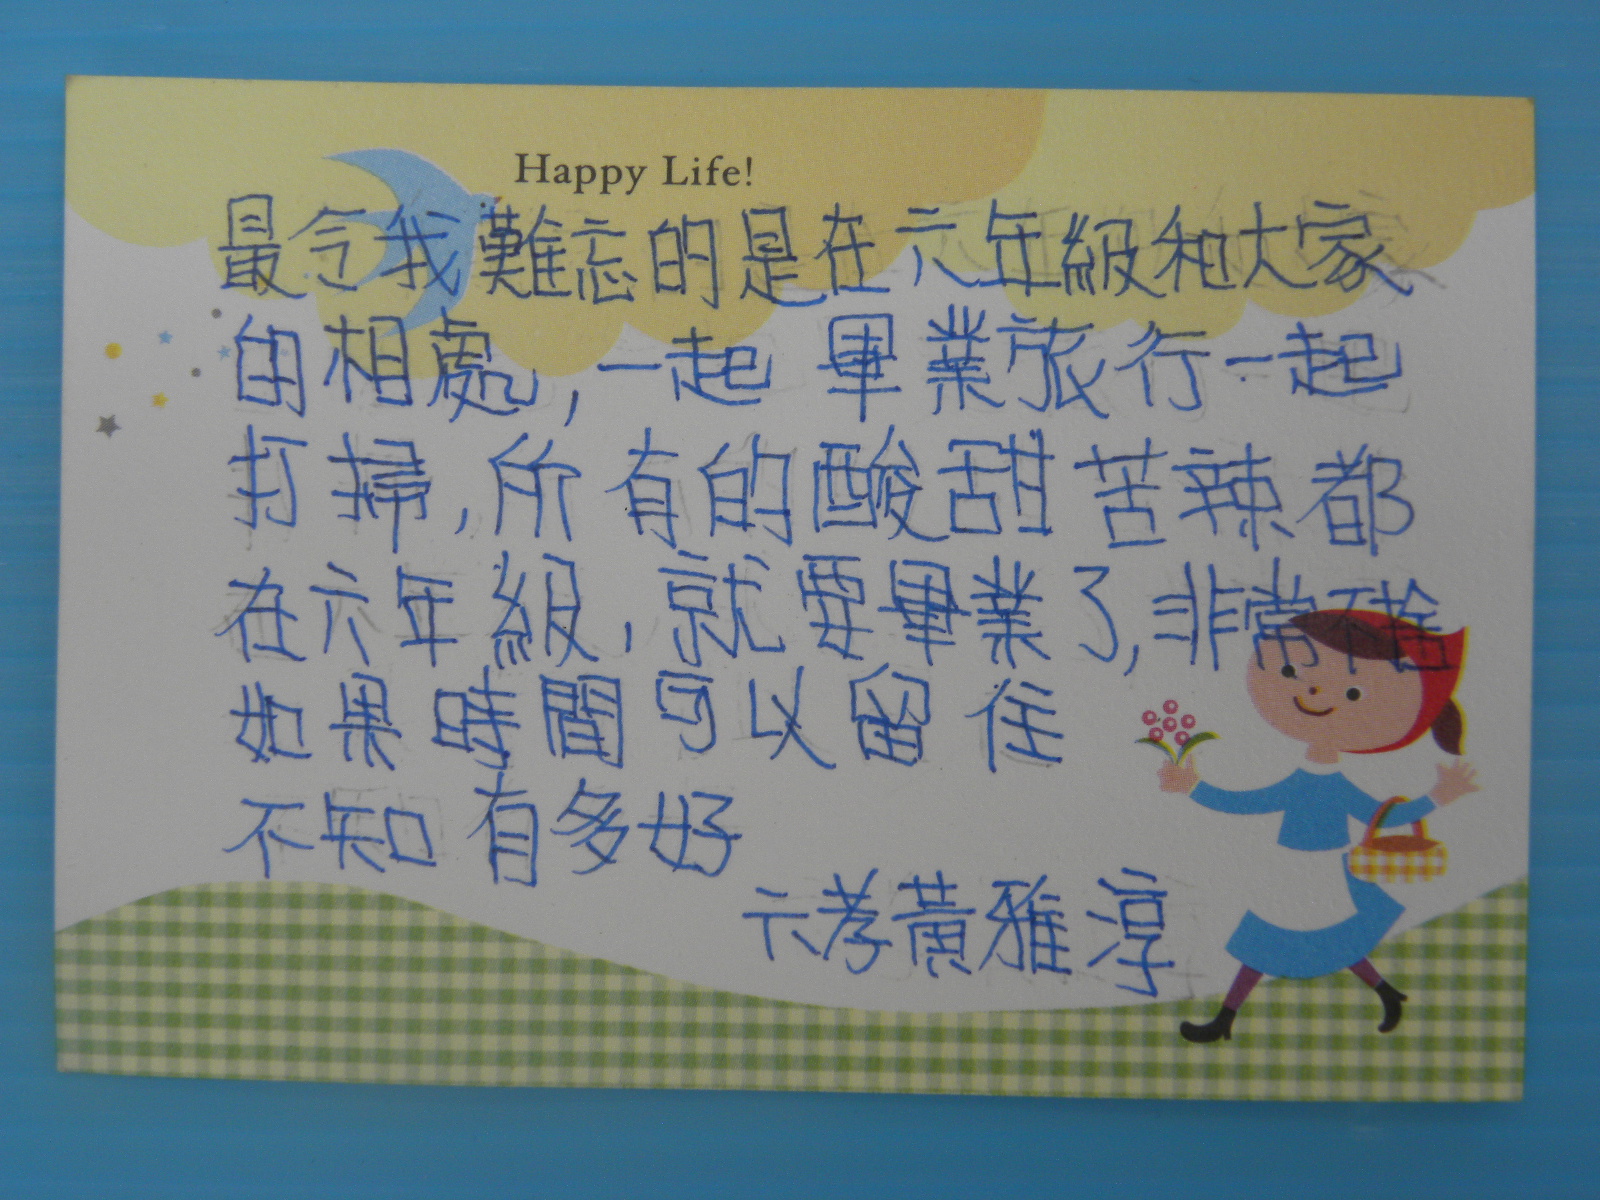 Happy Life!
最令我難忘的是在六年級和大家
的相處,一起 畢業旅行一起
打掃,所有的酸甜苦辣都
在六年級,就要畢業了,非常不捨
如果時間可以留住
不知有多好
六孝黃雅淳